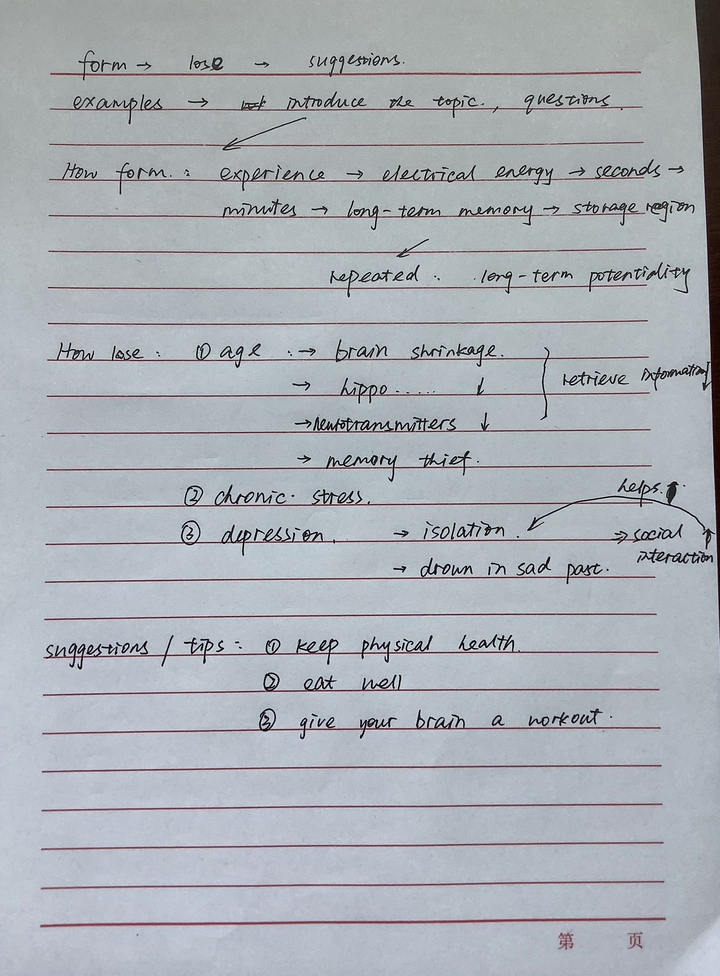 form → lose → suggestions.
examples → introduce the topic., questions.
How form. : experience → electrical energy → seconds →
minutes → long-term memory → storage region
repeated : long-term potentiality
How lose : ① age : → brain shrinkage.
→ hippo...... ↓ retrieve information ↓
→ Neurotransmitters ↓
→ memory thief.
② chronic stress.
helps.
③ depression. → isolation. ⇒ social ↑
interaction
→ drown in sad past.
suggestions / tips : ① keep physical health.
② eat well
③ give your brain a workout.
第 页